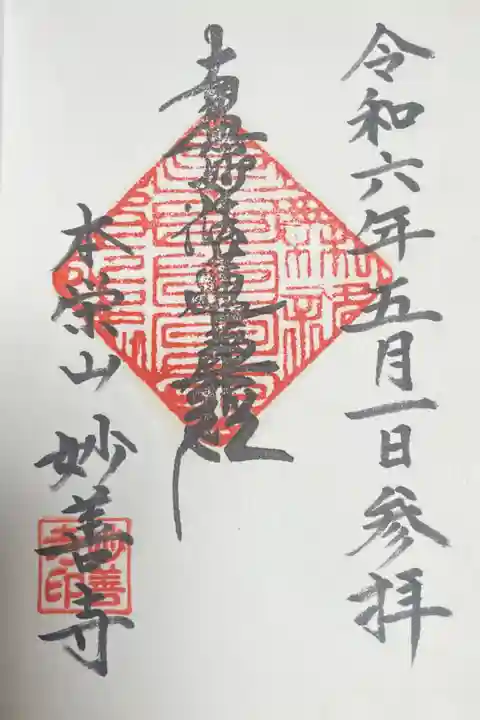 令和六年五月一日参拝
南無妙法蓮華経
本栄山 妙善寺
妙善寺印